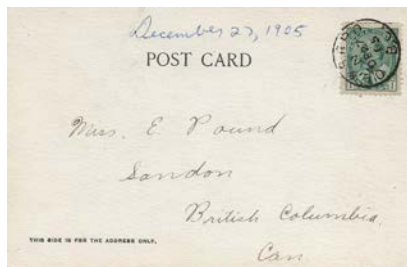 December 27, 1905
POST CARD
Miss. E. Pound
Sandon
British Columbia.
Can
THIS SIDE IS FOR THE ADDRESS ONLY.